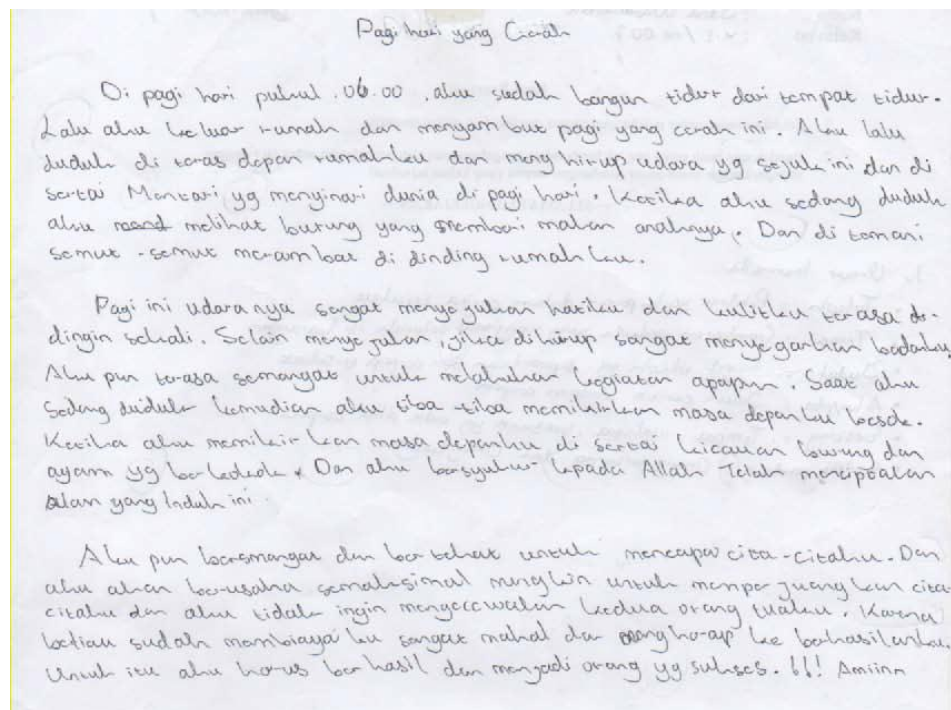 Pagi hari yang Cerah
Di pagi hari pukul .06.00 .aku sudah bangun tidur dari tempat tidur.
Lalu aku keluar rumah dan menyambut pagi yang cerah ini. Aku lalu
duduk di teras depan rumahku dan menghirup udara yg sejuk ini dan di
sertai Mentari yg menyinari dunia di pagi hari. Ketika aku sedang duduk
aku melihat burung yang memberi makan anaknya. Dan di temani
semut-semut merambat di dinding rumahku.
Pagi ini udaranya sangat menyejukan hatiku dan kulitku terasa
dingin sekali. Selain menyejukan, jika dihirup sangat menyegarkan badanku
Aku pun terasa semangat untuk melakukan kegiatan apapun. Saat aku
sedang duduk kemudian aku tiba-tiba memikirkan masa depanku besok.
Ketika aku memikirkan masa depanku di sertai kicauan burung dan
ayam yg berkokok. Dan aku bersyukur kepada Allah Telah menciptakan
Alam yang Indah ini.
Aku pun bersmangat dan bertekat untuk mencapai cita-citaku. Dan
aku akan berusaha semaksimal mungkin untuk memperjuangkan cita
citaku dan aku tidak ingin mengecewakan kedua orang tuaku. Karena
betiau sudah membiayai ku sangat mahal dan mengharap ke berhasilanku.
Untuk itu aku harus berhasil dan menjadi orang yg sukses. !!! Amiinn